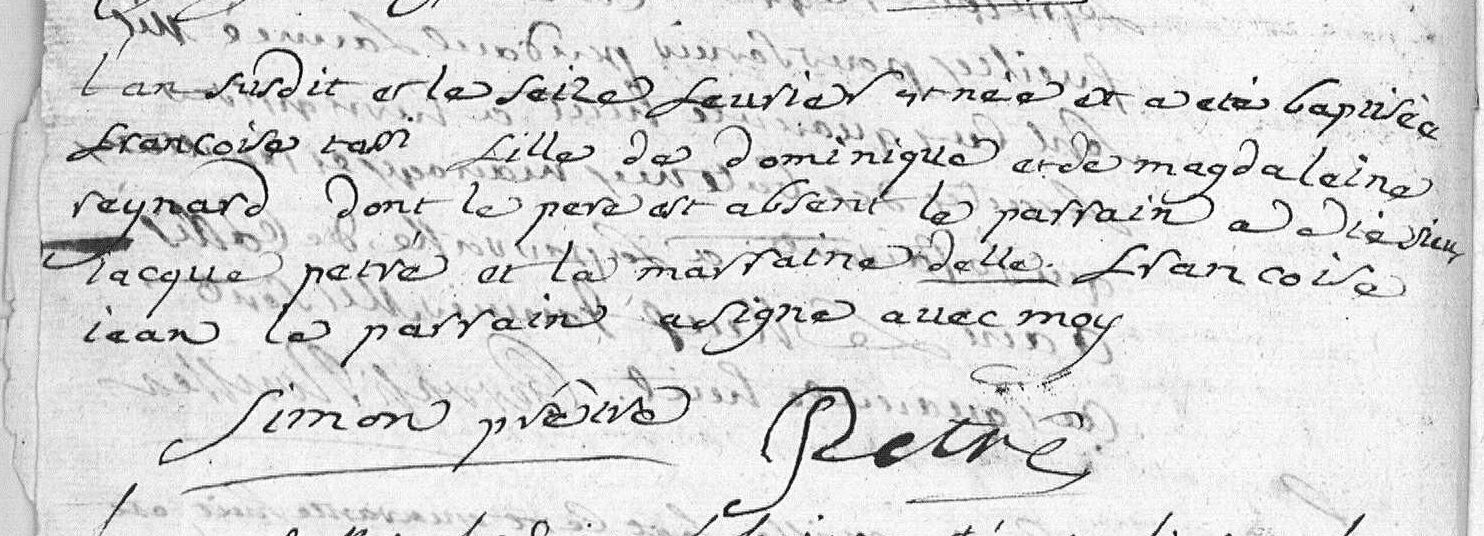 l an susdit et le seize feuvrier est née et a eté baptisée
francoise fille de dominique et de magdaleine
reynard dont le pere est absent le parrain a eté sieur
iacque petré et la marraine delle francoise
iean le parrain a signé auec moy
simon prêtre Petré